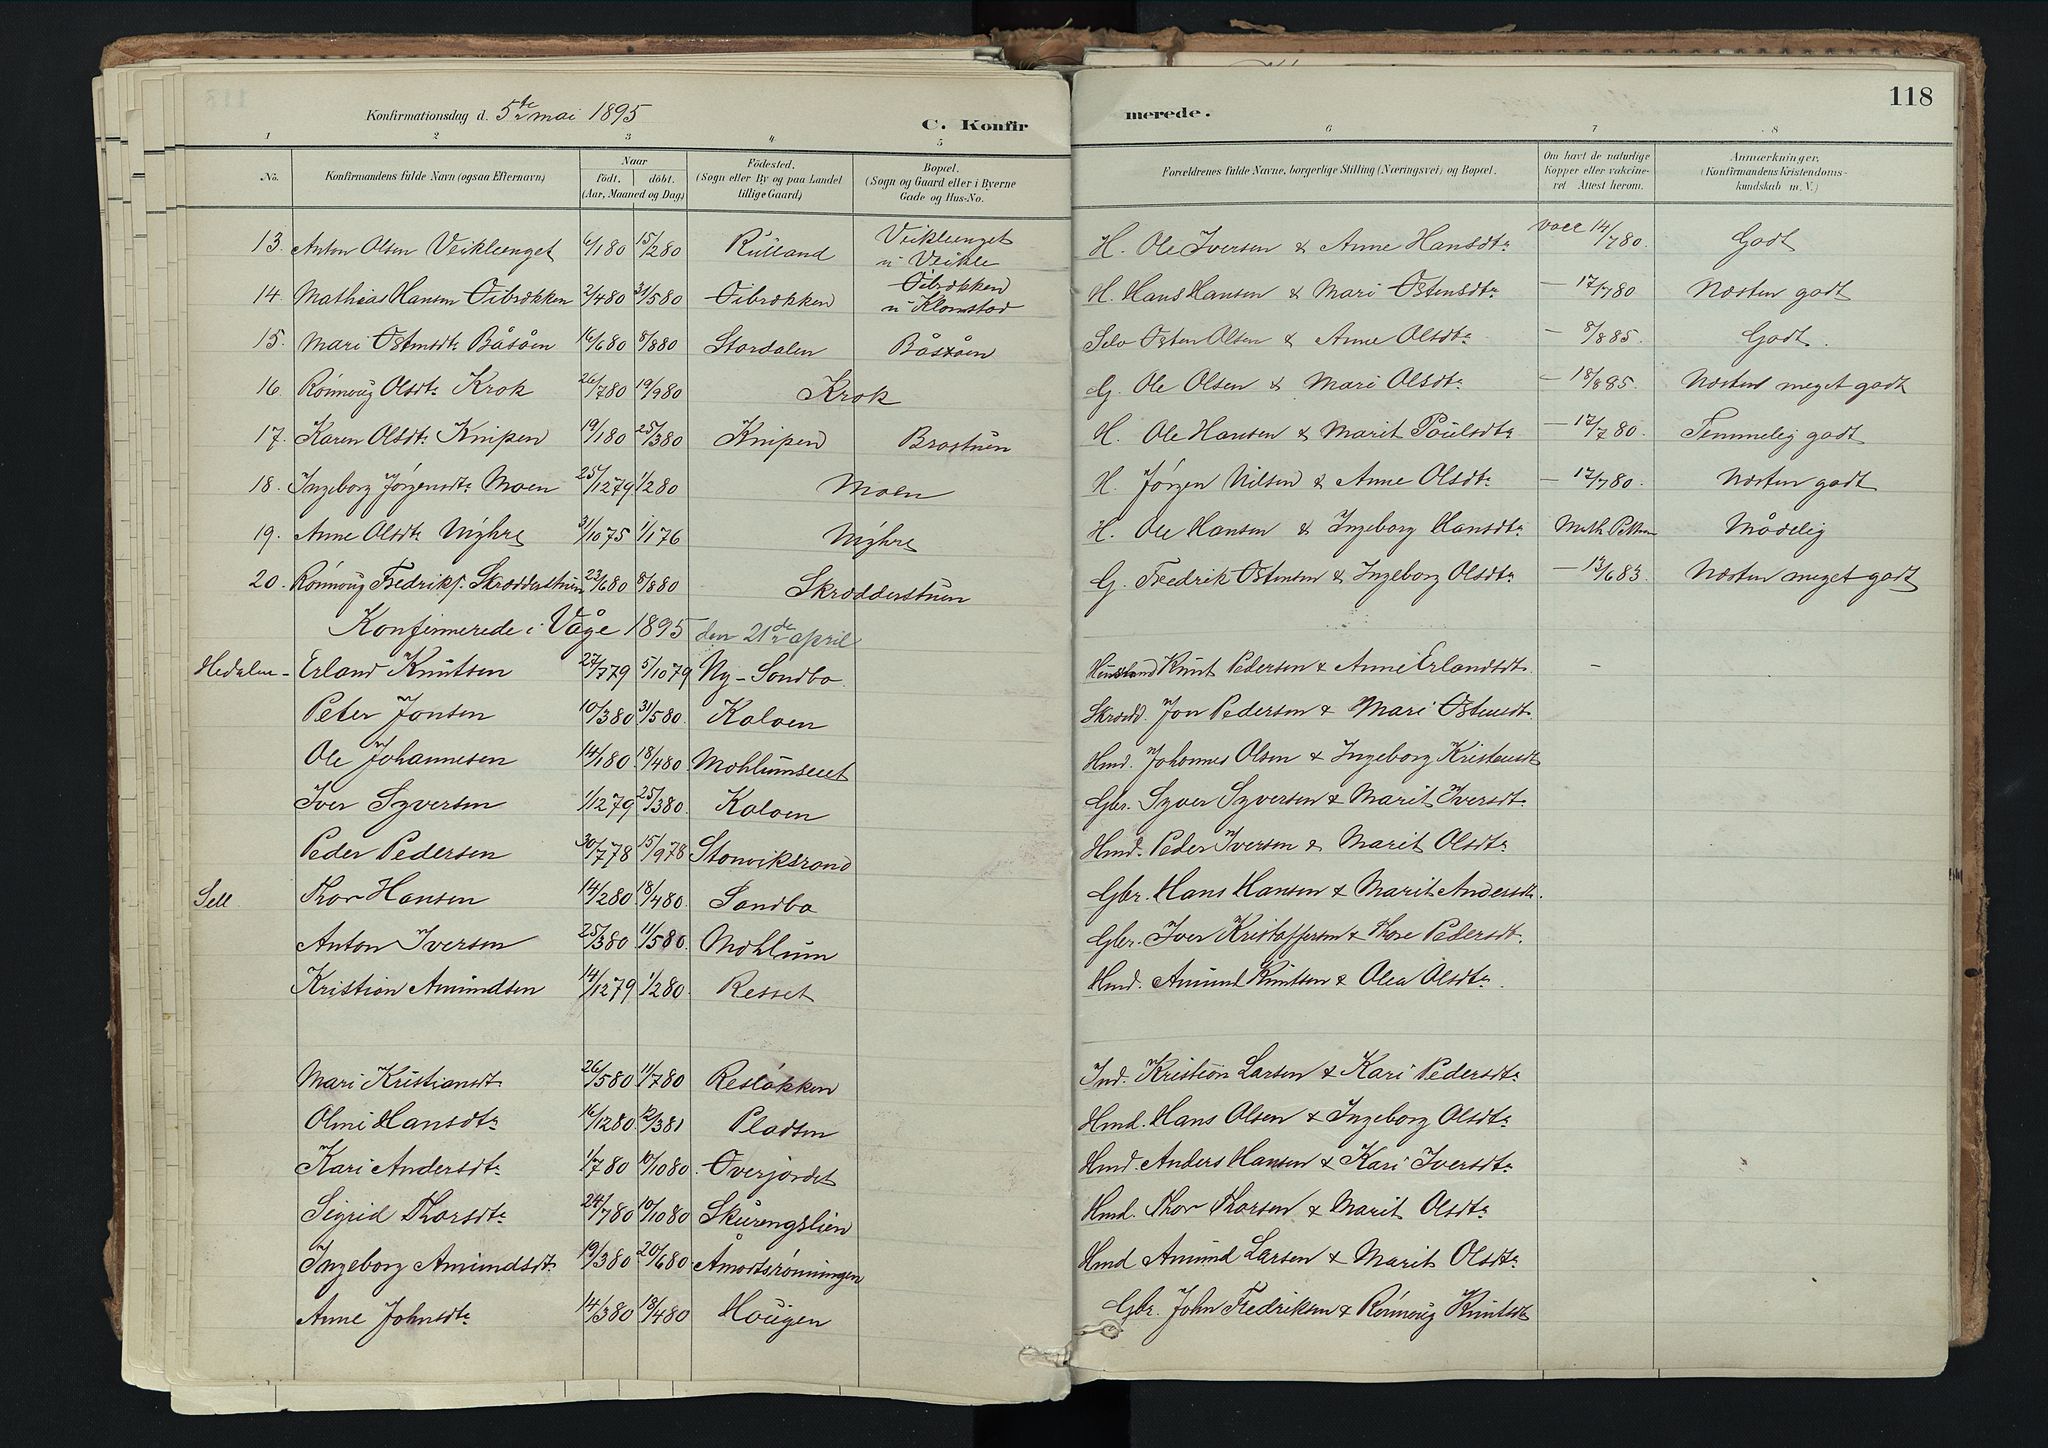 118
Konfirmationsdag d. 5te mai 1895
C. Konfirmerede.
1 2 3 4 5 6 7 8
No. Konfirmandens fulde Navn (ogsaa Efternavn). Naar født. døbt. (Aar, Maaned og Dag.) Födested. (Sogn eller By og paa Landet tillige Gaard.) Bopæl. (Sogn og Gaard eller i Byerne Gade og Hus-No. Forældrenes fulde Navne, borgerlige Stilling (Næringsvei) og Bopæl. Om havt de naturlige Kopper eller vakcineret. Attest herom. Anmærkninger. (Konfirmandens Kristendomskundskab m. V.)
13. Anton Olsen Veiklenget 6/180 15/280 Rulland Veiklenget u Veikle H. Ole Iversen & Anne Hansdtr vacc 14/780. Godt
14. Mathias Hansen Øibrækken 2/480 31/580 Øibrækken Øibrækken u Klomstad H. Hans Hansen & Mari Østensdtr — 17/780 Næsten godt
15. Mari Østensdtr Båsåen 16/680 8/880 Stordalen Båsåen Selv Østen Olsen & Anne Olsdtr — 8/885. Godt.
16. Rønnoug Olsdtr Krok 26/780 19/980 Krok G. Ole Olsen & Mari Olsdtr — 18/885. Næsten meget godt
17. Karen Olsdtr Knipen 19/180 25/380 Knipen Brostuen H. Ole Hansen & Marit Poulsdtr — 12/780. Temmelig godt
18. Ingeborg Jørgensdtr Moen 25/1279 1/280 Moen H. Jørgen Nilsen & Anne Olsdtr — 12/780. Næsten godt
19. Anne Olsdtr Nyhre 31/1075 1/176 Nyhre H. Ole Hansen & Ingeborg Hansdtr Mådelig
20. Rønnoug Fredriks. Skrædderstuen 23/680 8/880 Skrædderstuen G. Fredrik Østensen & Ingeborg Olsdtr — 13/683. Næsten meget godt
Konfirmerede i Våge 1895 den 21de april
Hedalen – Erland Knutsen 27/779 5/1079 Ny-Sandbo. Husmand Knut Pedersen & Anne Erlandsdt. –
Peter Jonsen 10/380 31/580. Kaloen Skrædd. Jon Pedersen & Mari Østensdt.
Ole Johannesen 14/180. 18/480 Mohlumseiet Hmd. Johannes Olsen & Ingeborg Kristensdt
Iver Syversen 1/1279 25/380. Kaloen Gbr. Syver Syversen & Marit Iversdt.
Peder Pedersen 30/778 15/978 Storviksrand Hmd. Peder Iversen & Marit Olsdtr
Sell. Thor Hansen 14/280 18/480. Sandbo Gbr. Hans Hansen & Marit Andersdt.
Anton Iversen 25/380 11/580. Mohlum Gbr. Iver Kristoffersen & Thore Pedersdt.
Kristian Amundsen 14/1279 1/280. Resset Hmd. Amund Knutsen & Olea Olsdtr.
Mari Kristiansdt 26/580 11/780 Resløkken Ind. Kristian Larsen & Kari Pedersdtr
Olmi Hansdtr 16/1280. 12/381 Pladsen Hmd. Hans Olsen & Ingeborg Olsdtr
Kari Andersdtr 1/780 10/1080 Øverjordet Hmd. Anders Hansen & Kari Iversdtr
Sigrid Thorsdtr 24/780 10/1080 Skurengslien Hmd. Thor Thorsen & Marit Olsdtr
Ingeborg Amundsdt. 19/380 20/680 Åmotsrønningen Hmd Amund Larsen & Marit Olsdtr
Anne Johnsdtr 14/380 18/480 Hougen Gbr. John Fredriksen & Rønnoug Knutsdt